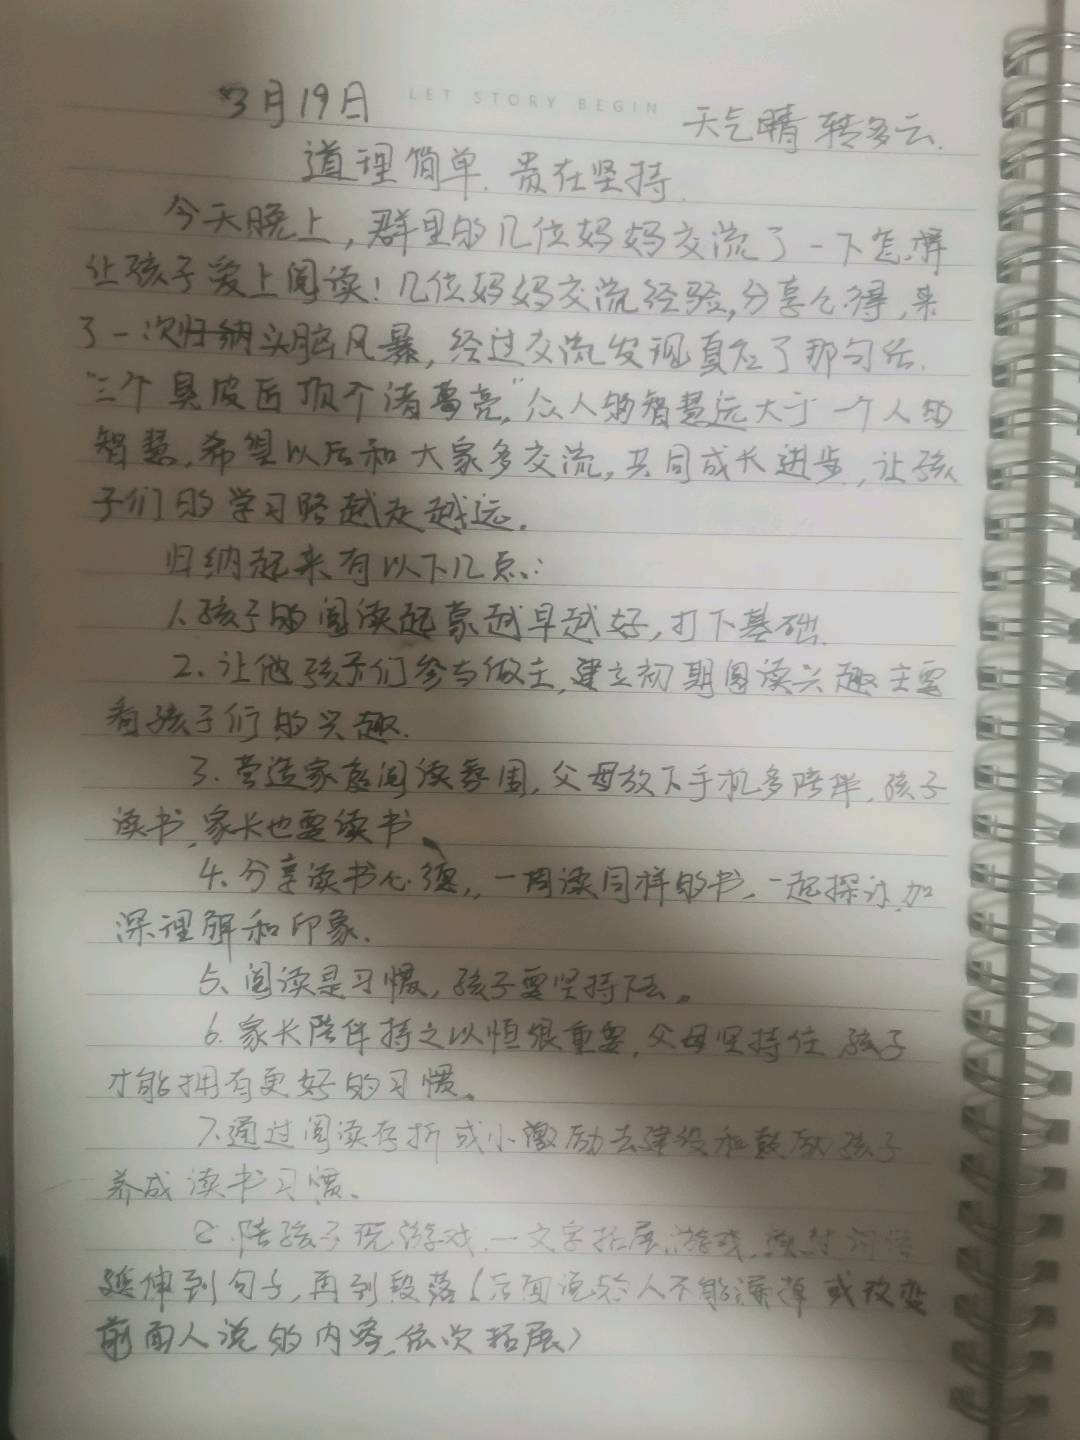 3月19日
LET STORY BEGIN
天气晴转多云.
道理简单.贵在坚持.
今天晚上,群里的几位妈妈交流了一下怎样
让孩子爱上阅读!几位妈妈交流经验,分享心得,来
了一次归纳头脑风暴,经过交流发现真应了那句话.
"三个臭皮匠顶个诸葛亮,"众人的智慧远大于一个人的
智慧,希望以后和大家多交流,共同成长进步,让孩
子们的学习路越走越远.
归纳起来有以下几点:
1.孩子的阅读起蒙越早越好,打下基础.
2.让他孩子们参与做主,建立初期阅读兴趣主要
看孩子们的兴趣.
3.营造家庭阅读氛围,父母放下手机多陪伴,孩子
读书,家长也要读书、
4.分享读书心得,一周读同样的书,一起探讨,加
深理解和印象.
5、阅读是习惯,孩子要坚持下去。
6.家长陪伴持之以恒很重要,父母坚持住孩子
才能拥有更好的习惯。
7.通过阅读存折或小激励去建设和鼓励孩子
养成读书习惯、
8.陪孩子玩游戏,一文字拓展游戏,
延伸到句子,再到段落(后面说的人不能漏掉或改变
前面人说的内容,依次拓展)